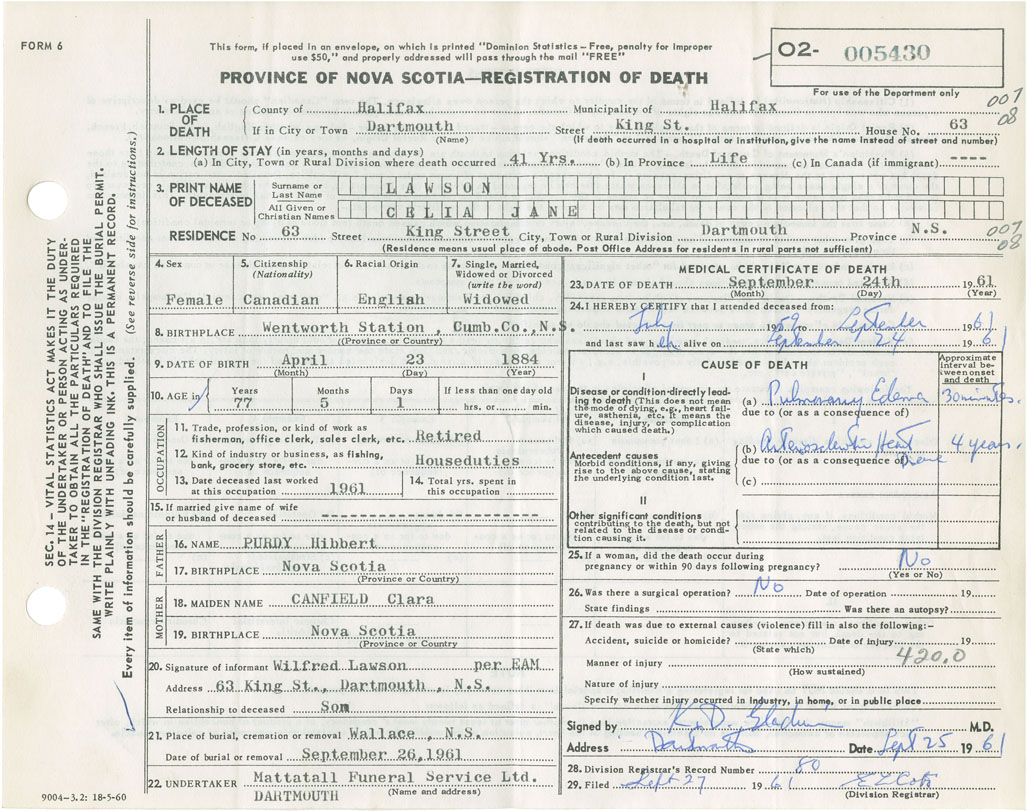 FORM 6
This form, if placed in an envelope, on which is printed "Dominion Statistics – Free, penalty for improper
use $50," and properly addressed will pass through the mail "FREE"
PROVINCE OF NOVA SCOTIA—REGISTRATION OF DEATH
02- 005430
For use of the Department only
007
08
1. PLACE OF DEATH
County of Halifax Municipality of Halifax
If in City or Town Dartmouth Street King St. House No. 63
(Name) (If death occurred in a hospital or institution, give the name instead of street and number)
2. LENGTH OF STAY (in years, months and days)
(a) In City, Town or Rural Division where death occurred 41 Yrs. (b) In Province Life (c) In Canada (if immigrant) ----
3. PRINT NAME OF DECEASED
Surname or Last Name LAWSON
All Given or Christian Names CELIA JANE
RESIDENCE No 63 Street King Street City, Town or Rural Division Dartmouth Province N.S.
007
08
(Residence means usual place of abode. Post Office Address for residents in rural parts not sufficient)
4. Sex
Female
5. Citizenship (Nationality)
Canadian
6. Racial Origin
English
7. Single, Married, Widowed or Divorced (write the word)
Widowed
8. BIRTHPLACE Wentworth Station, Cumb.Co., N.S.
((Province or Country)
9. DATE OF BIRTH April 23 1884
(Month) (Day) (Year)
10. AGE in Years Months Days If less than one day old
77 5 1 hrs. or min.
OCCUPATION
11. Trade, profession, or kind of work as
fisherman, office clerk, sales clerk, etc. Retired
12. Kind of industry or business, as fishing,
bank, grocery store, etc. Houseduties
13. Date deceased last worked
at this occupation 1961
14. Total yrs. spent in
this occupation
15. If married give name of wife
or husband of deceased ----------------
FATHER
16. NAME PURDY Hibbert
17. BIRTHPLACE Nova Scotia
(Province or Country)
MOTHER
18. MAIDEN NAME CANFIELD Clara
19. BIRTHPLACE Nova Scotia
(Province or Country
20. Signature of informant Wilfred Lawson per EAM
Address 63 King St., Dartmouth, N.S.
Relationship to deceased Son
21. Place of burial, cremation or removal Wallace, N.S.
Date of burial or removal September 26,1961
22. UNDERTAKER Mattatall Funeral Service Ltd.
DARTMOUTH (Name and address)
MEDICAL CERTIFICATE OF DEATH
23. DATE OF DEATH September 24th 1961
(Month) (Day) (Year)
24. I HEREBY CERTIFY that I attended deceased from:
July 1959 to September 1961
and last saw her alive on September 24 1961
CAUSE OF DEATH
Approximate interval between onset and death
I
Disease or condition directly leading
to death (This does not mean
the mode of dying, e.g., heart failure,
asthenia, etc. It means the
disease, injury, or complication
which caused death.
(a) Pulmonary Edema 30 minutes.
due to (or as a consequence of)
Antecedent causes
Morbid conditions, if any, giving
rise to the above cause, stating
the underlying condition last.
(b) Arteriosclerotic Heart 4 years.
due to (or as a consequence of)
(c)
II
Other significant conditions
contributing to the death, but not
related to the disease or condition
causing it.
25. If a woman, did the death occur during
pregnancy or within 90 days following pregnancy? No
(Yes or No)
26. Was there a surgical operation? No Date of operation 19
State findings Was there an autopsy?
27. If death was due to external causes (violence) fill in also the following:–
Accident, suicide or homicide? Date of injury 19
(State which)
420.0
Manner of injury
(How sustained)
Nature of injury
Specify whether injury occurred in Industry, in home, or in public place
Signed by K. D. M.D.
Address Dartmouth Date Sept 25 1961
28. Division Registrar's Record Number 80
29. Filed Sept 27 1961
(Division Registrar)
SEC. 14 – VITAL STATISTICS ACT MAKES IT THE DUTY
OF THE UNDERTAKER OR PERSON ACTING AS UNDERTAKER
TO OBTAIN ALL THE PARTICULARS REQUIRED
IN THE "REGISTRATION OF DEATH" AND TO FILE THE
SAME WITH THE DIVISION REGISTRAR WHO SHALL ISSUE THE BURIAL PERMIT.
WRITE PLAINLY WITH UNFADING INK. THIS IS A PERMANENT RECORD.
Every item of information should be carefully supplied. (See reverse side for instructions.)
9004-3.2: 18-5-60